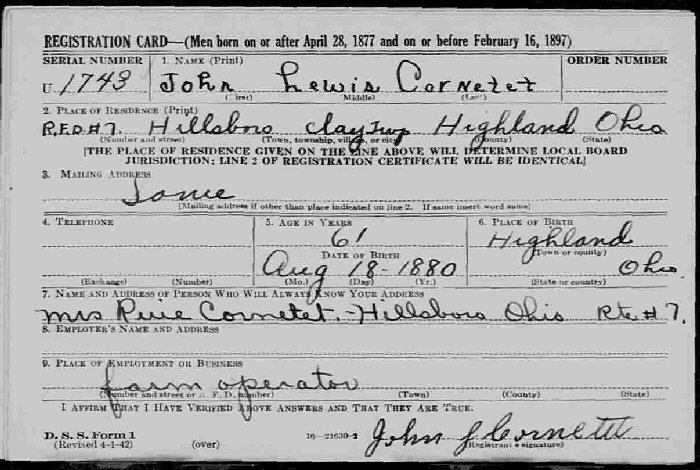 REGISTRATION CARD—(Men born on or after April 28, 1877 and on or before February 16, 1897)
SERIAL NUMBER 1. NAME (Print) ORDER NUMBER
U 1743 John Lewis Cornetet
(First) (Middle) (Last)
2. PLACE OF RESIDENCE (Print)
R.F.D. #7. Hillsboro Clay Twp Highland Ohio
(Number and street) (Town, township, village, or city) (County) (State)
[THE PLACE OF RESIDENCE GIVEN ON THE LINE ABOVE WILL DETERMINE LOCAL BOARD
JURISDICTION; LINE 2 OF REGISTRATION CERTIFICATE WILL BE IDENTICAL]
3. MAILING ADDRESS
Same
[Mailing address if other than place indicated on line 2. If same insert word same]
4. TELEPHONE 5. AGE IN YEARS 6. PLACE OF BIRTH
61 Highland
DATE OF BIRTH (Town or county)
Aug 18-1880 Ohio
(Exchange) (Number) (Mo.) (Day) (Yr.) (State or country)
7. NAME AND ADDRESS OF PERSON WHO WILL ALWAYS KNOW YOUR ADDRESS
Mrs Cornetet.-Hillsboro Ohio Rte #7.
8. EMPLOYER'S NAME AND ADDRESS
9. PLACE OF EMPLOYMENT OR BUSINESS
farm operator
(Number and street or R. F. D. number) (Town) (County) (State)
I AFFIRM THAT I HAVE VERIFIED ABOVE ANSWERS AND THAT THEY ARE TRUE.
D. S. S. Form 1
(Revised 4-1-42) (over) 16—21630-2 John L Cornetet
(Registrant's signature)